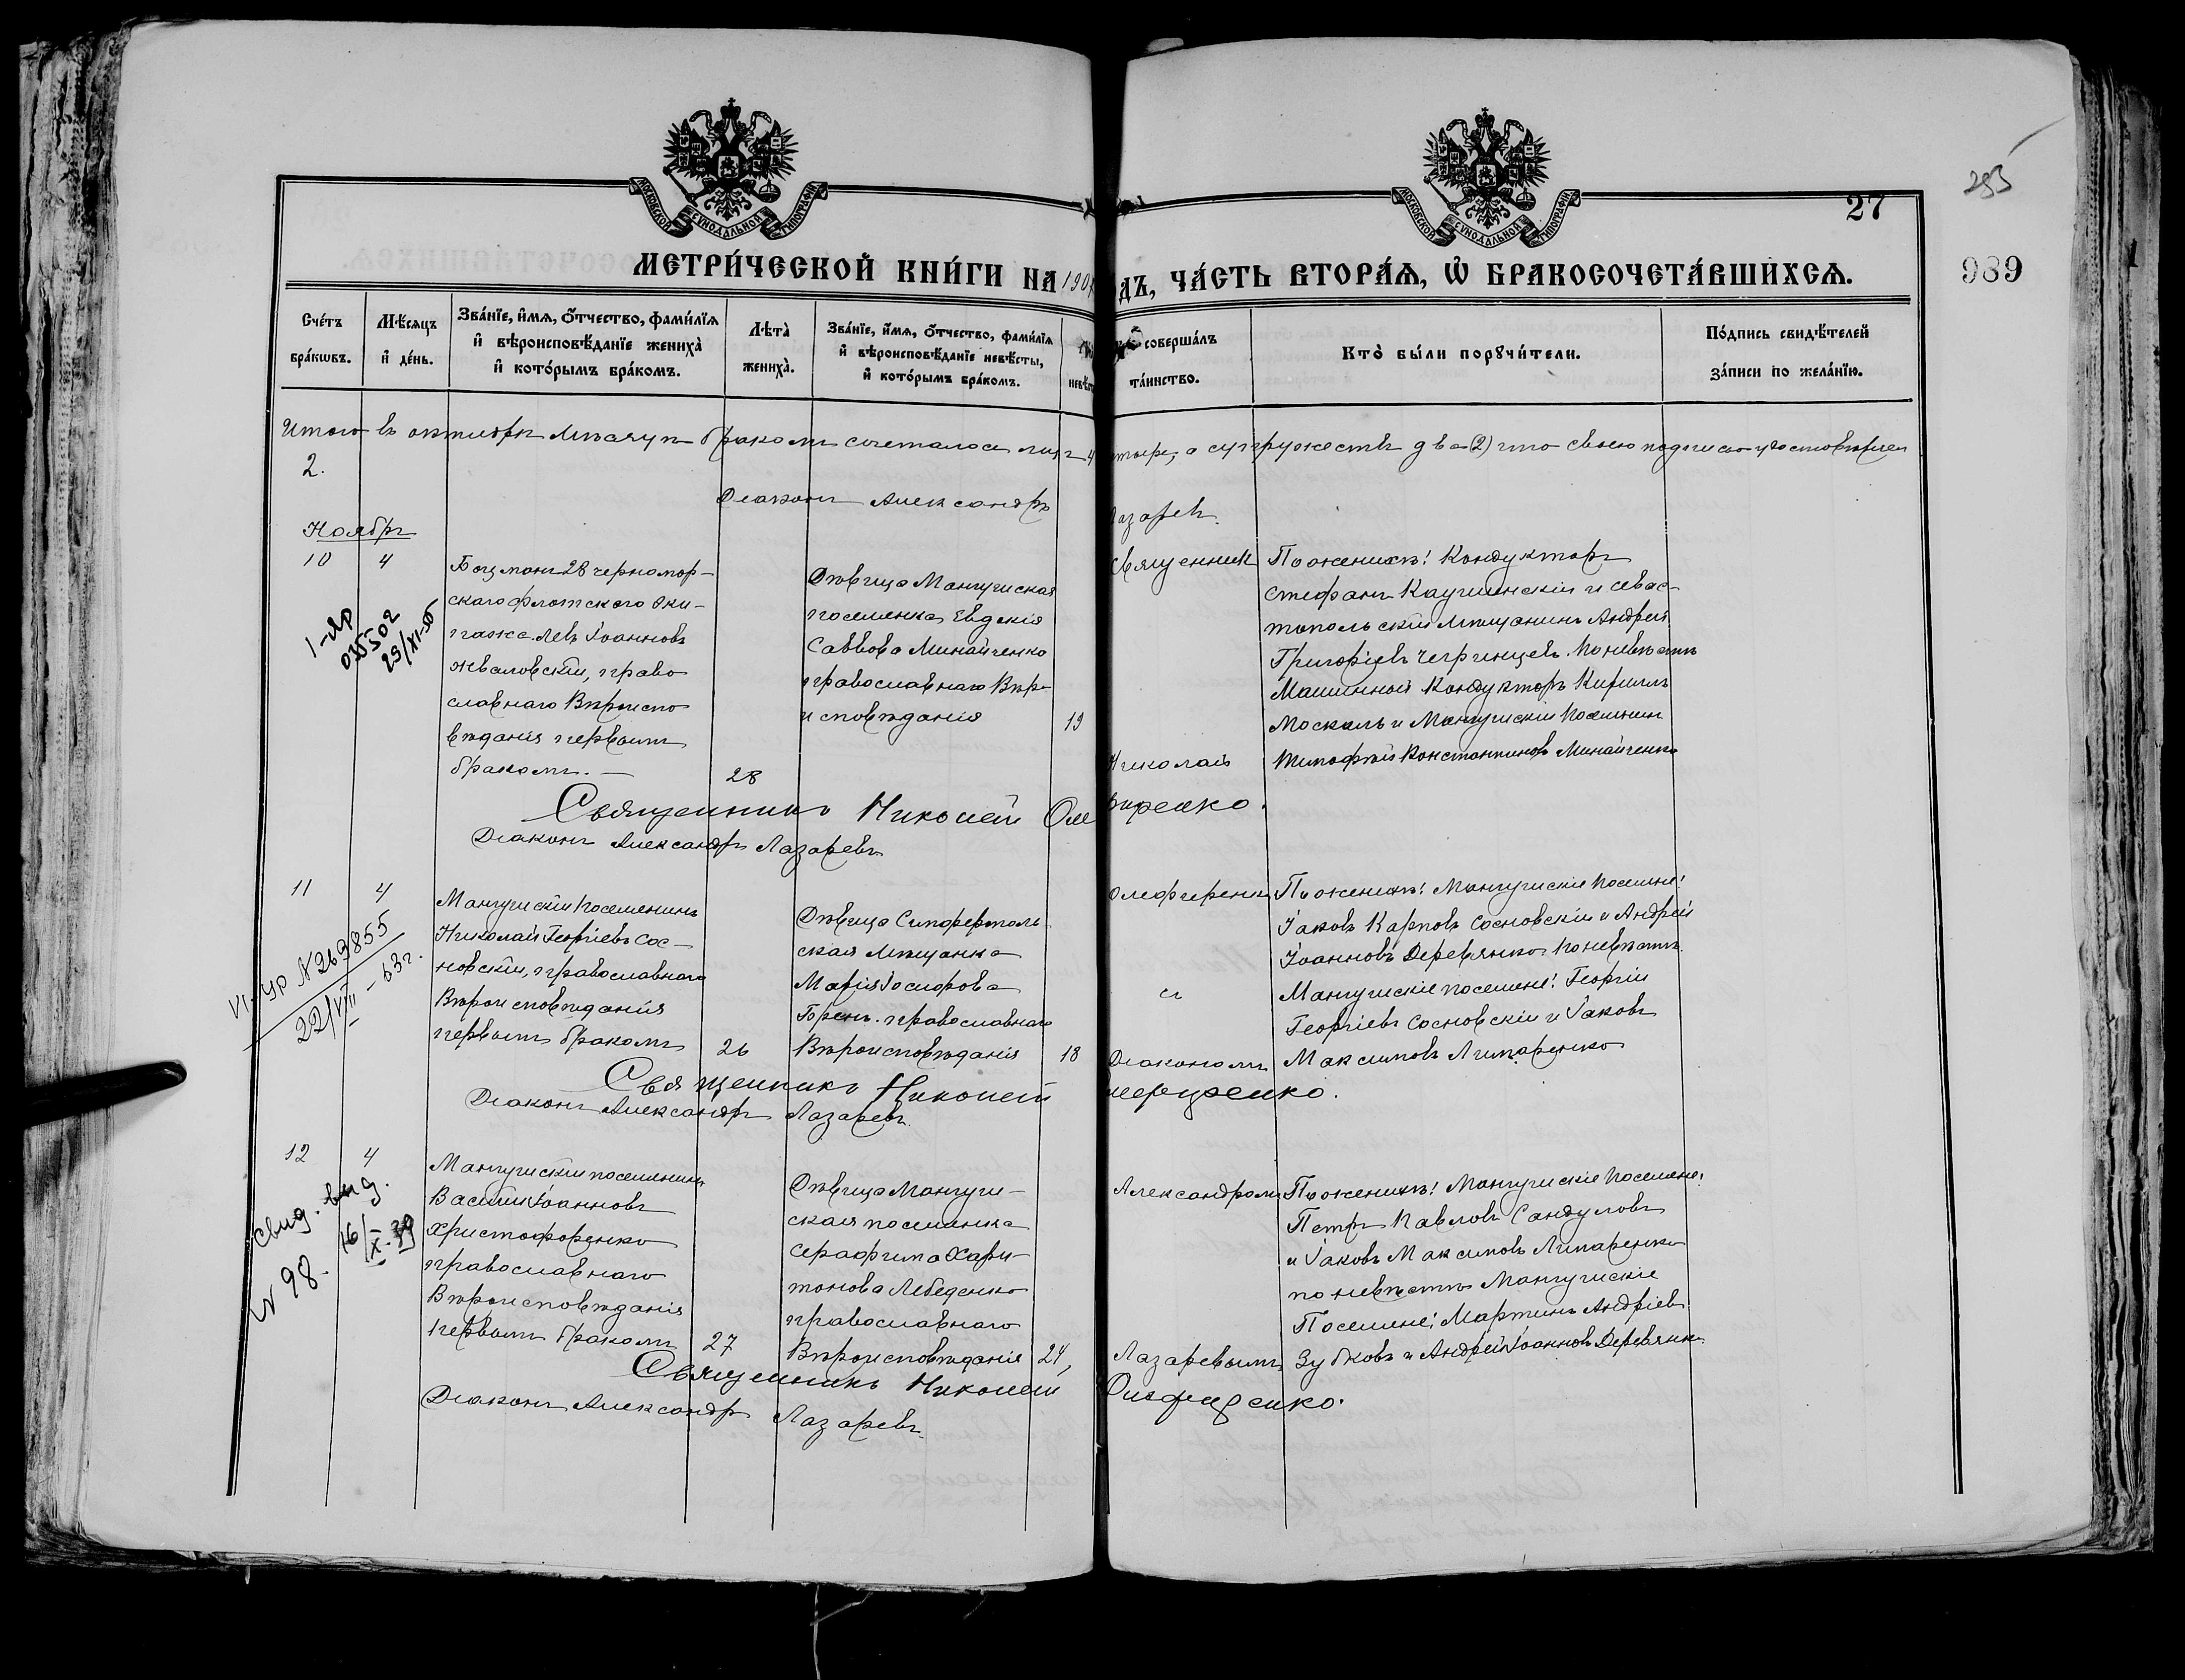 МОСКОВСКОЙ СѴНОДАЛЬНОЙ ТИПОГРАФІИ
МОСКОВСКОЙ СѴНОДАЛЬНОЙ ТИПОГРАФІИ
27
989
МЕТРИ́ЧЕСКОЙ КНИ́ГИ НА 190
ДЪ, ЧА́СТЬ ВТОРА́Ѧ, Ѡ҆ БРАКОСОЧЕТА́ВШИХСѦ.
Сче́тъ бра́кѡвъ.
Мѣ́сѧцъ и҆ де́нь.
Зва́нїе, и҆́мѧ, ѻ҆́тчество, фами́лїѧ и҆ вѣроисповѣ́данїе жениха̀ и҆ кото́рымъ бра́комъ.
Лѣта̀ жениха̀.
Зва́нїе, и҆́мѧ, ѻ҆́тчество, фами́лїѧ и҆ вѣроисповѣ́данїе невѣ́сты, и҆ кото́рымъ бра́комъ.
соверша́лъ та́инство.
Кто̀ бы́ли порꙋчи́тели.
По́дпись свидѣ́телей за́писи по жела́нїю.
Итого въ октябрѣ мѣсяцѣ бракомъ сочеталось лицъ четыре, а супружествъ два (2) что своею подписью удостовѣряем
2.
Діаконъ Александръ Лазаревъ.
Ноябрь
10
4
Боцманъ 28 черномор-
скаго флотскаго эки-
пажа Левъ Іоанновъ
Жваловскій, право
славнаго Вѣроиспо
вѣданія первымъ
бракомъ.
28
Дѣвица Мангушская
поселянка Евдокія
Саввова Минайченко
православнаго Вѣро
исповѣданія
19
Священник
Николай
По женихѣ: Кондукторъ
Стефанъ Каушинскій и Севас-
топольскій мѣщанинъ Андрей
Григоріевъ Чегринцевъ. По невѣстѣ
Машинный Кондукторъ Кириллъ
Москаль и Мангушскій Поселянин
Тимофей Константиновъ Минайченко
1-ЯР
035502
29/XI-50
Священникъ Николай Олефиренко.
Діаконъ Александръ Лазаревъ
11
4
Мангушскій поселянинъ
Николай Георгіевъ Сос-
новскій, православнаго
Вѣроисповѣданія
первымъ бракомъ
26
Дѣвица Симферополь
ская мѣщанка
Марія Іосифова
Горенъ. православнаго
Вѣроисповѣданія
18
Олефиренко
съ
Діакономъ
По женихѣ: Мангушскіе поселяне:
Іаковъ Карповъ Сосновскій и Андрей
Іоанновъ Деревянко. По невѣстѣ
Мангушскіе поселяне: Георгій
Георгіевъ Сосновскій и Іаковъ
Максимовъ Липаренко
VI-УР N 269855
22/VIII-63г.
Священникъ Николай
Діаконъ Александръ Лазаревъ
12
4
Мангушскій поселянинъ
Василій Іоанновъ
Христофоренко
православнаго
Вѣроисповѣданія
первымъ бракомъ
27
Дѣвица Мангуш-
ская поселянка
Серафима Хари-
тонова Лебеденко
православнаго
Вѣроисповѣданія
24
Александромъ
Лазаревымъ
По женихѣ: Мангушскіе Поселяне:
Петръ Павловъ Сандуловъ
и Іаковъ Максимовъ Липаренко
по невѣстѣ Мангушскіе
Поселяне: Мартинъ Андріевъ
Зубковъ и Андрей Іоанновъ Деревянко.
Свид. выд.
16/X-39
N 98.
Священникъ Николай Олефиренко.
Діаконъ Александръ Лазаревъ.